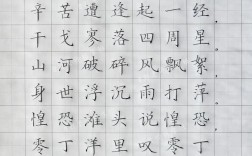 辛苦遭逢起一经，
干戈寥落四周星。
山河破碎风飘絮，
身世浮沉雨打萍。
惶恐滩头说惶恐，
零丁洋里叹零丁